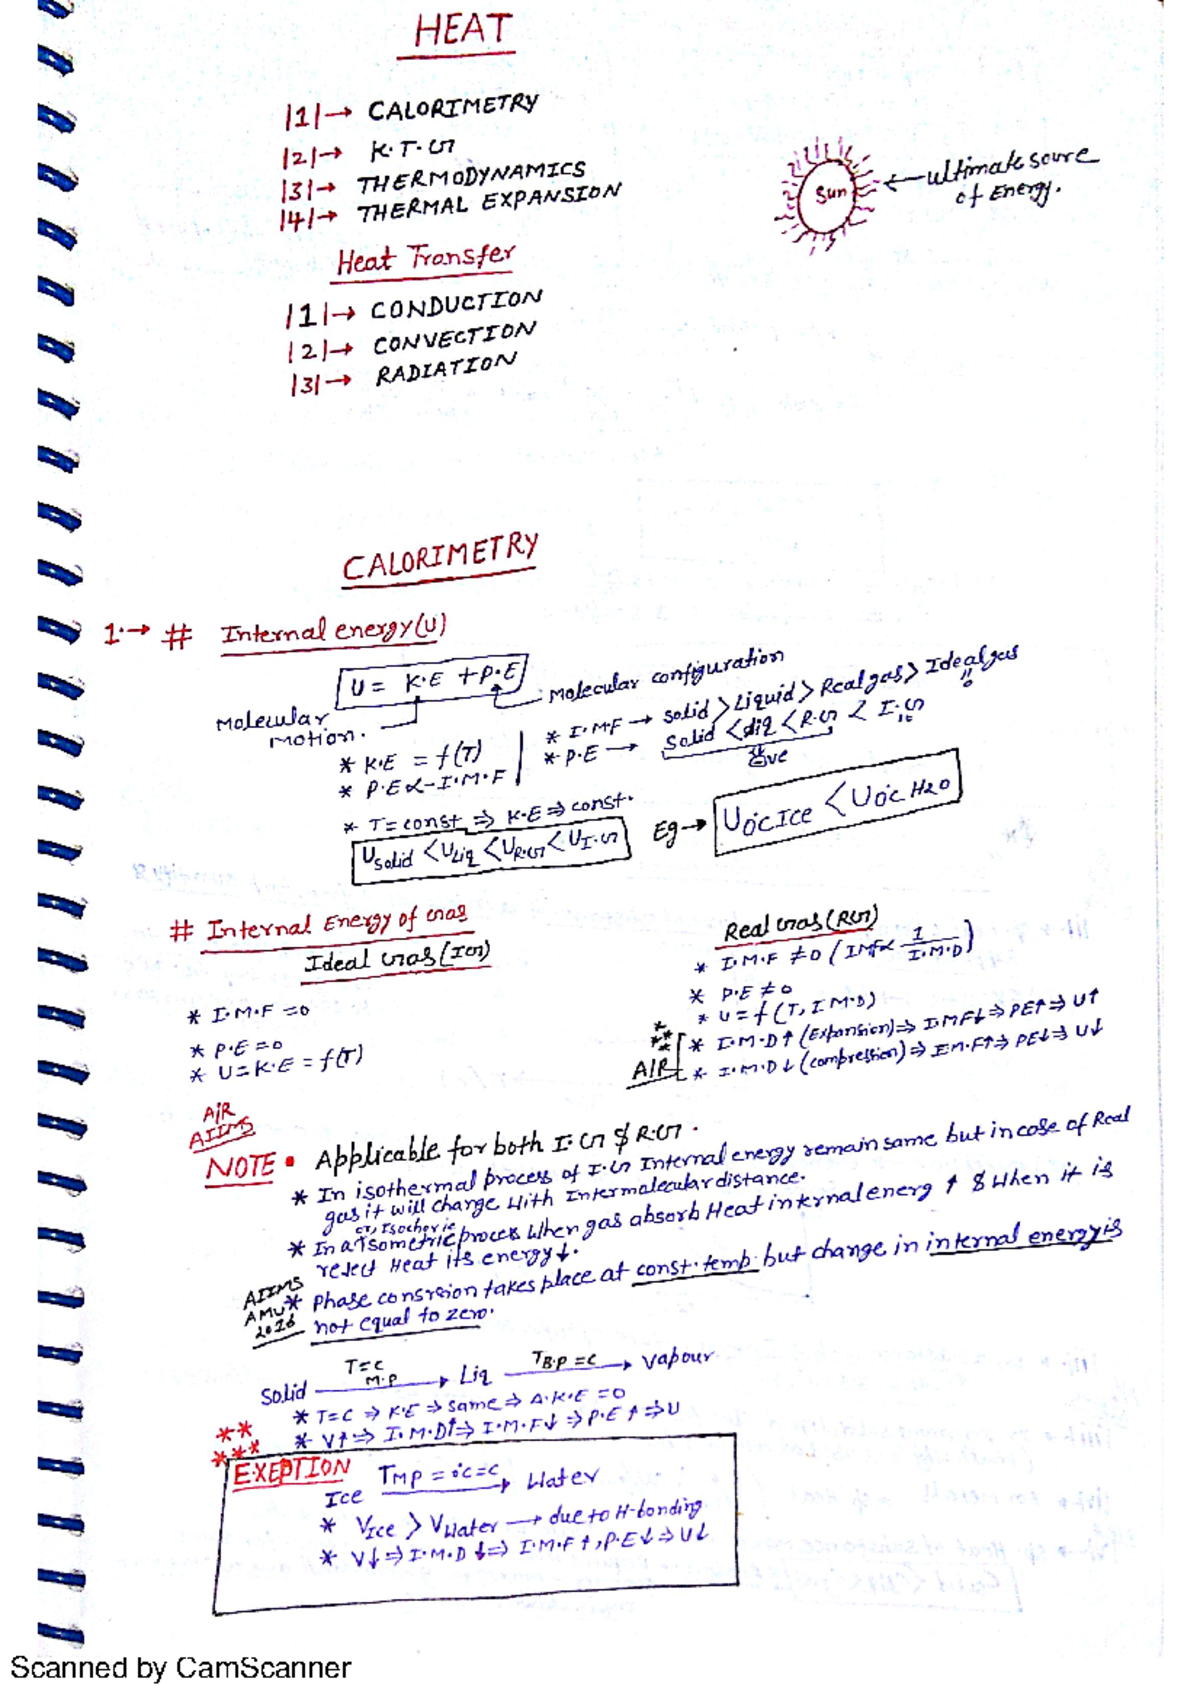 HEAT
|1|→ CALORIMETRY
|2|→ K.T.G
|3|→ THERMODYNAMICS
|4|→ THERMAL EXPANSION
Sun ← ultimate soure
of Energy.
Heat Transfer
|1|→ CONDUCTION
|2|→ CONVECTION
|3|→ RADIATION
CALORIMETRY
1.→ # Internal energy(U)
U = K.E + P.E
Molecular configuration
Molecular
motion.
* I.M.F → solid > Liquid > Real gas > Ideal gas
* P.E → Solid < liq < R.G < I.G
⊖ve
* K.E = f(T)
* P.E ∝ -I.M.F
* T = const ⇒ K.E ⇒ const.
U solid < U Liq < U R.G < U I.G
Eg → U 0°C Ice < U 0°C H2O
# Internal Energy of Gas
Ideal Gas (IG)
* I.M.F = 0
* P.E = 0
* U = K.E = f(T)
Real Gas (RG)
* I.M.F ≠ 0 (IMF ∝ 1/I.M.D)
* P.E ≠ 0
* U = f(T, I M.D)
* I.M.D↑ (Expansion) ⇒ I.MF↓ ⇒ PE↑ ⇒ U↑
AIR * I.M.D↓ (compression) ⇒ I.M.F↑ ⇒ PE↓ ⇒ U↓
AIR
AIIMS
NOTE • Applicable for both I.G & R.G.
* In isothermal process of I.G Internal energy remain same but in case of Real
gas it will change with Intermolecular distance.
or, Isochoric
* In a Isometric process when gas absorb Heat internal energ ↑ & when it is
reject Heat its energy↓.
AIIMS
AMU
2016
* Phase consrsion takes place at const. temp. but change in internal energy is
not equal to zero.
Solid T=C M.P → Liq T B.P = C → vapour
* T=C ⇒ K.E ⇒ same ⇒ Δ.K.E = 0
* V↑ ⇒ I.M.D↑ ⇒ I.M.F↓ ⇒ P.E↑ ⇒ U
**
***
EXEPTION
Ice T MP = 0°C = C → Water
* V Ice > V Water → due to H-bonding
* V↓ ⇒ I.M.D↓ ⇒ I.M.F↑, P.E↓ ⇒ U↓
Scanned by CamScanner